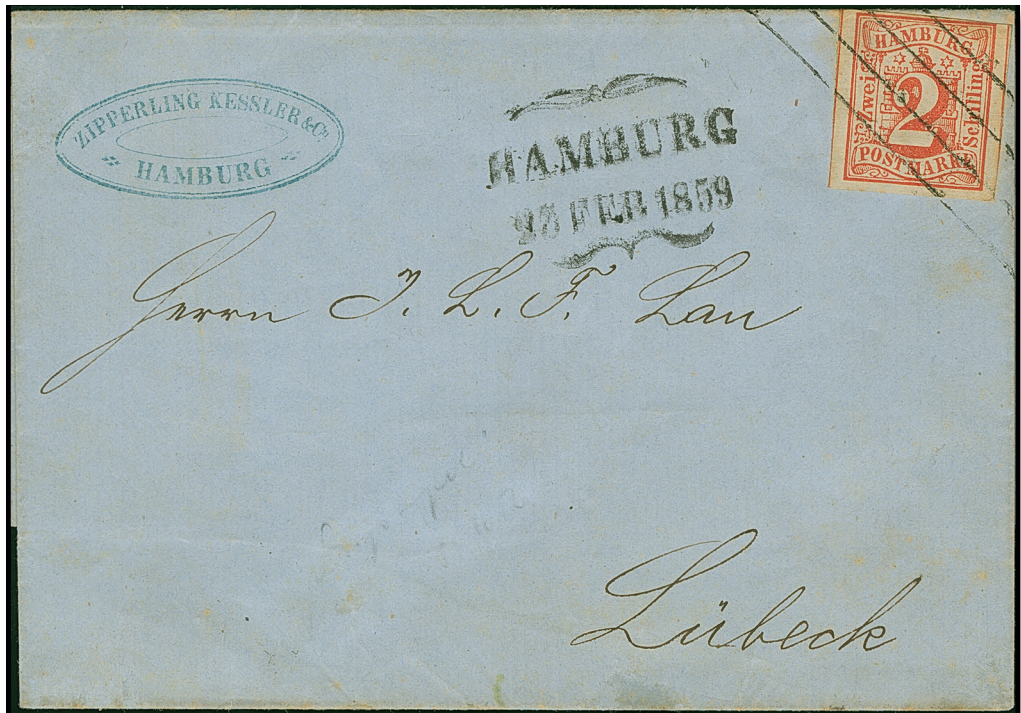 ZIPPERLING KESSLER & Co
HAMBURG
HAMBURG
FEB 1859
HAMBURG
Zwei
2
Schilling
POSTMARKE
Herrn J. L. F. Lau
Lübeck